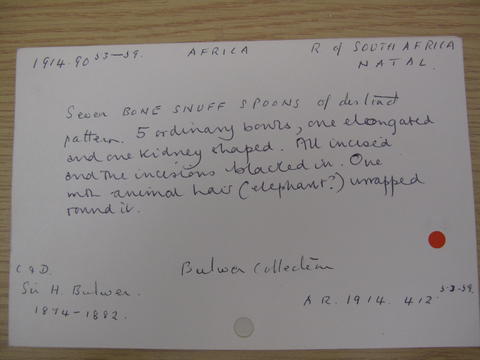 1914.90 53-59. AFRICA R of SOUTH AFRICA
NATAL.
Seven BONE SNUFF SPOONS of distinct
pattern. 5 ordinary bowls, one elongated
and one kidney shaped. All incised
and the incisions blacked in. One
with animal hair (elephant?) wrapped
round it.
C & D. Bulwer Collection
Sir H. Bulwer.
1874-1882. A R. 1914. 412 53-59.